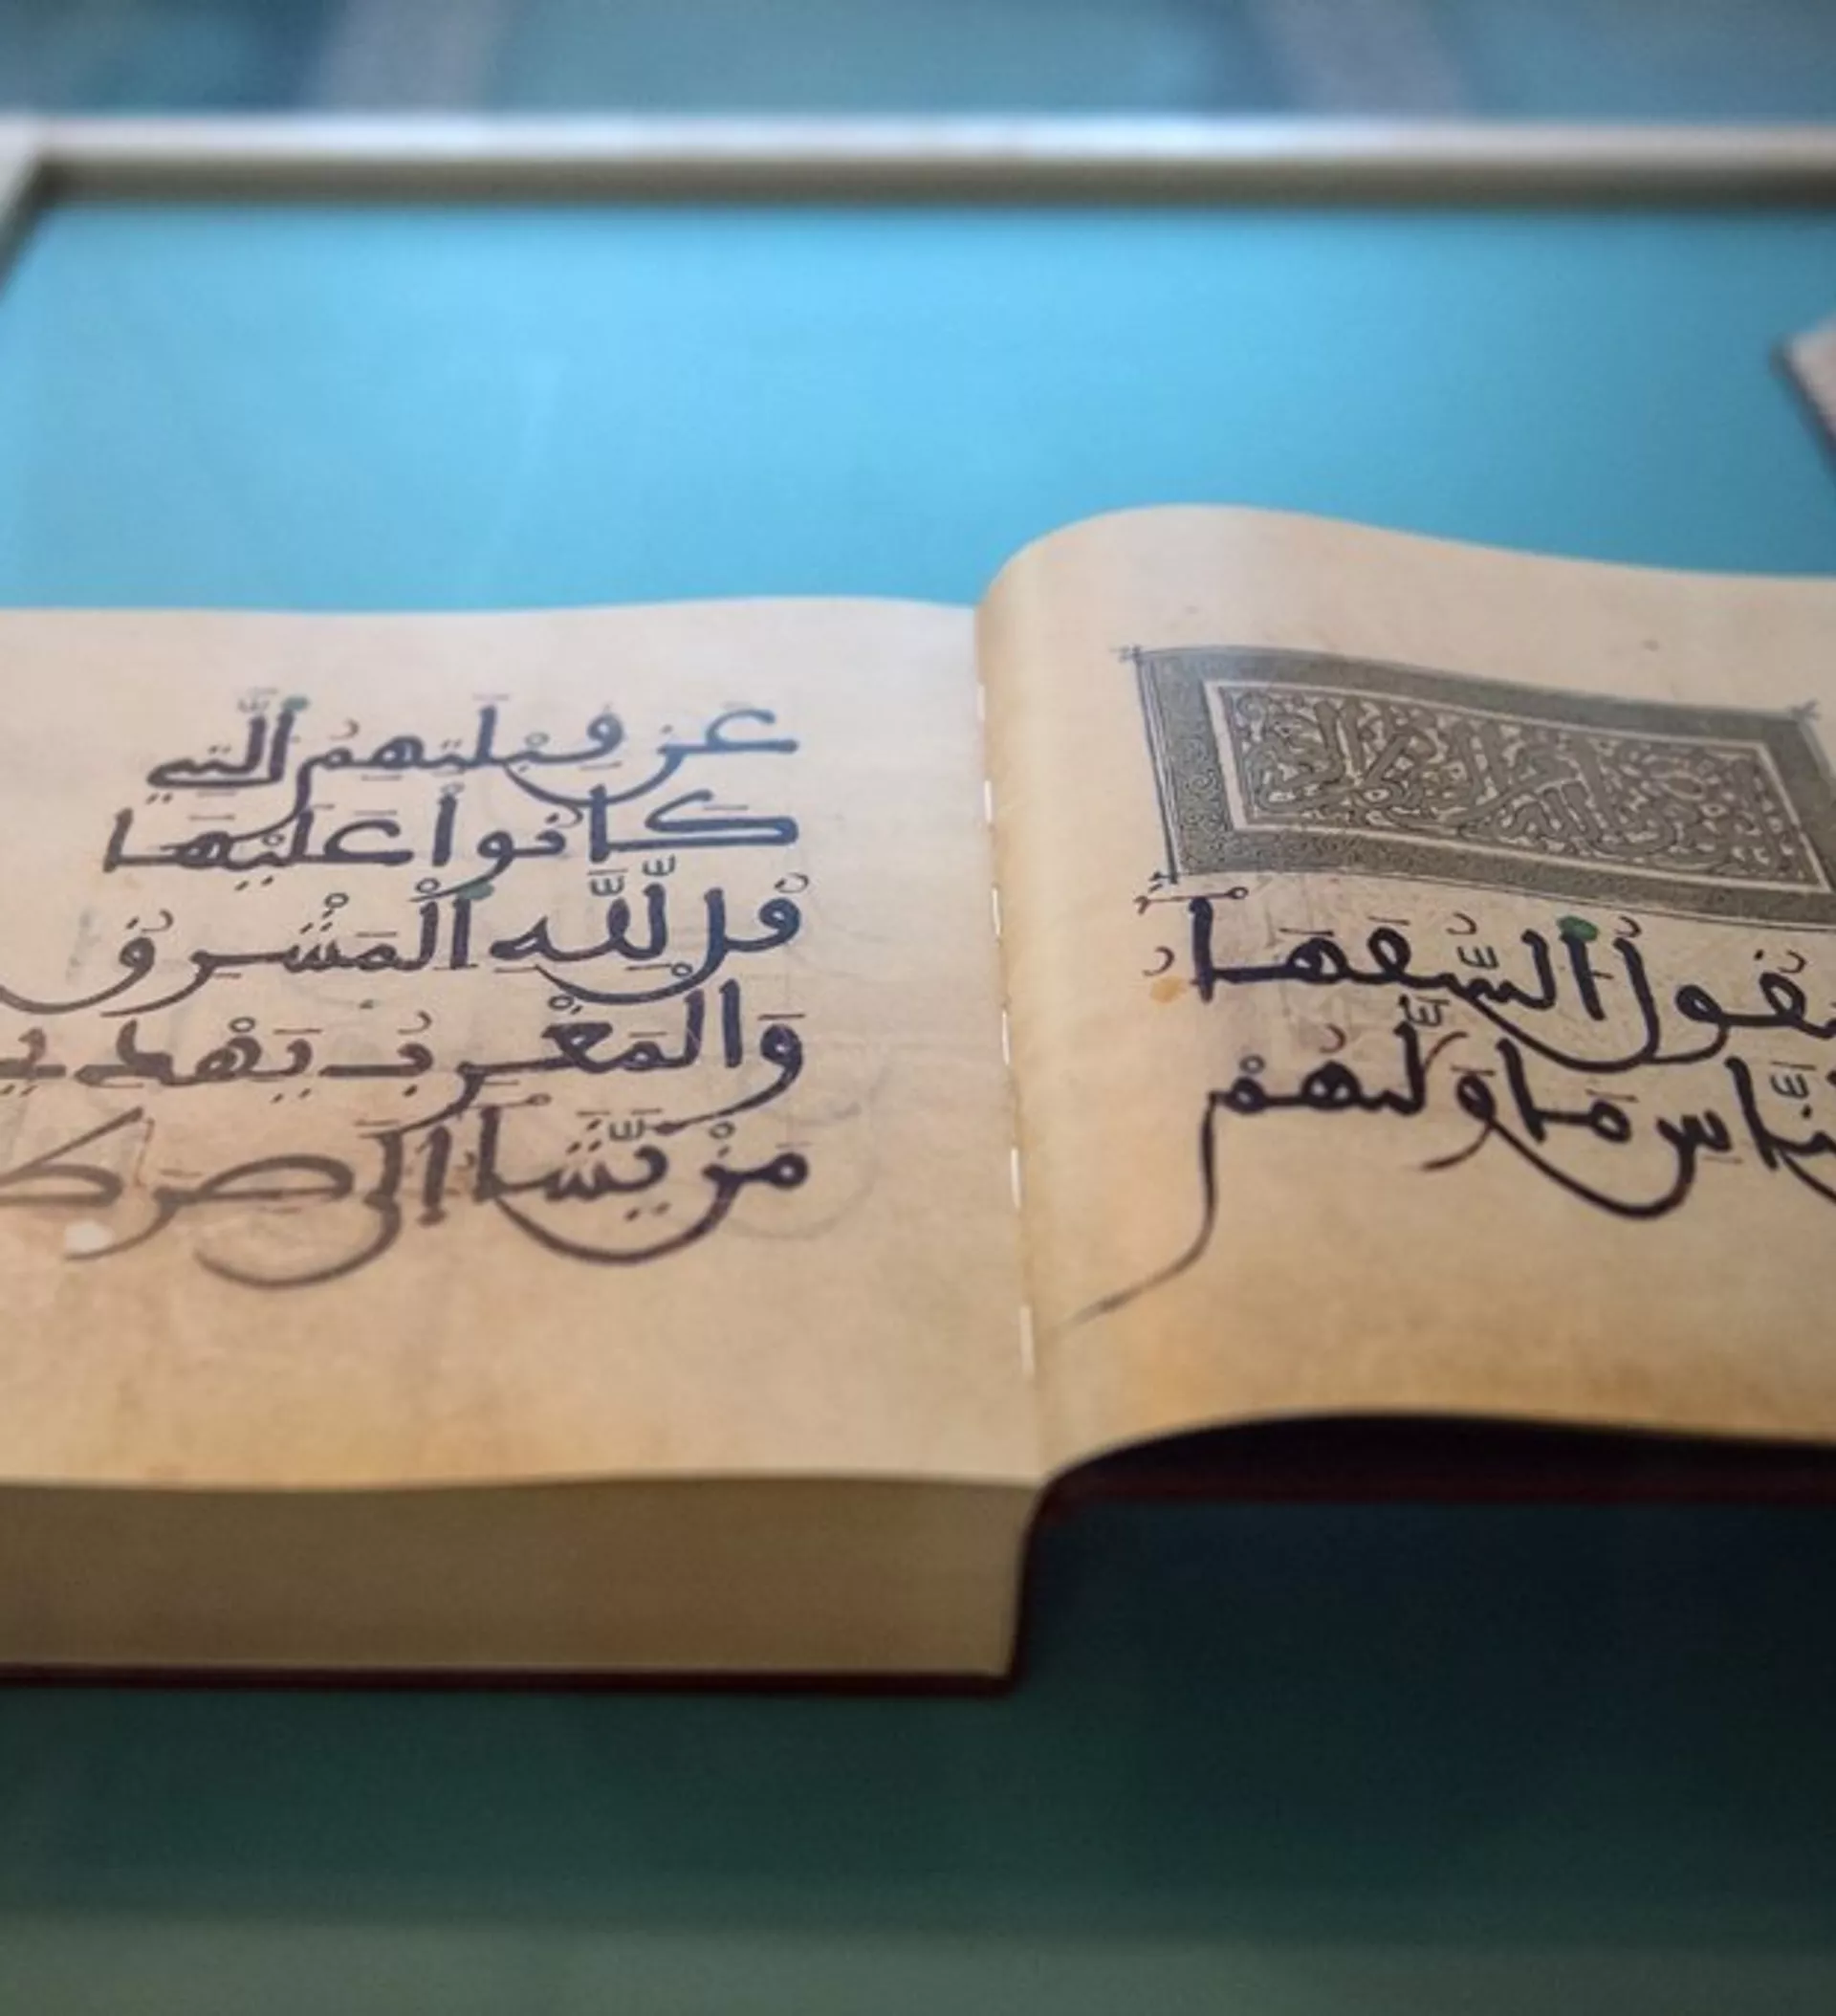 يقول السفها
الناس ما ولىهم
عَن قِبْلَتِهِمُ اَلَّتِي
كَانُواْ عَلَيْهَا
قُل لِّلَّهِ اِلْمَشْرِقُ
وَالْمَغْرِبُ يَهْدِي
مَنْ يَّشَا إِلَى صِرَط